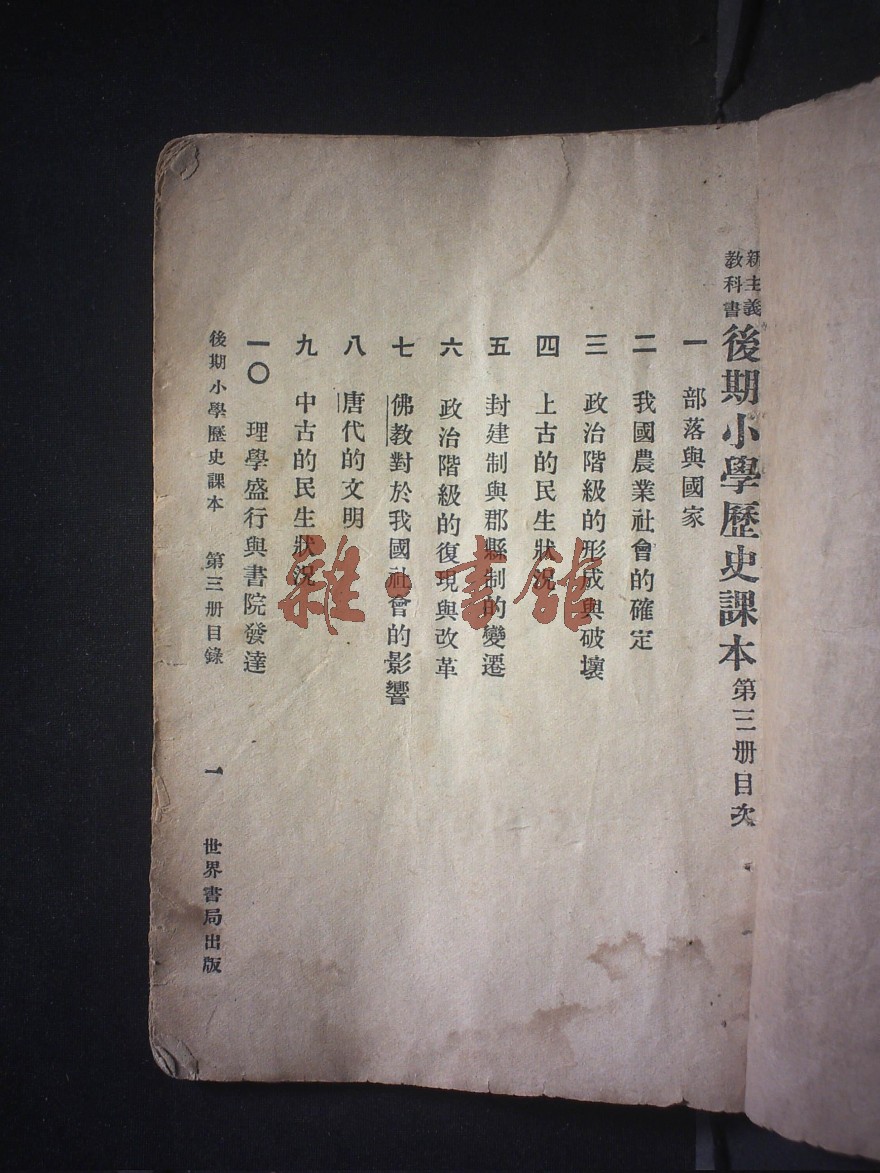 新主義
教科書
後期小學歷史課本 第三册目次
一 部落與國家
二 我國農業社會的確定
三 政治階級的形成與破壞
四 上古的民生狀況
五 封建制與郡縣制的變遷
六 政治階級的復現與改革
七 佛教對於我國社會的影響
八 唐代的文明
九 中古的民生狀況
一〇 理學盛行與書院發達
後期小學歷史課本 第三册目錄 一 世界書局出版
雜·書館